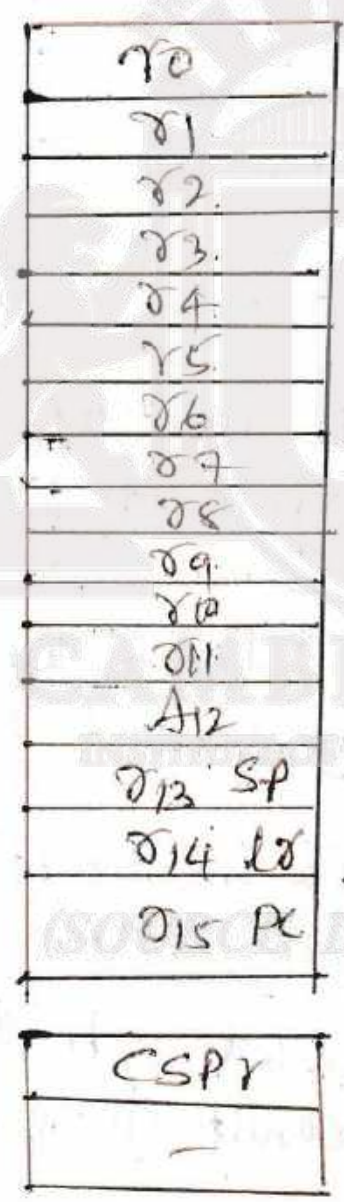 r0
r1
r2.
r3.
r4
r5.
r6
r7
r8
r9.
r10
r11.
A12
r13 SP
r14 lr
r15 PC
CSPr
-